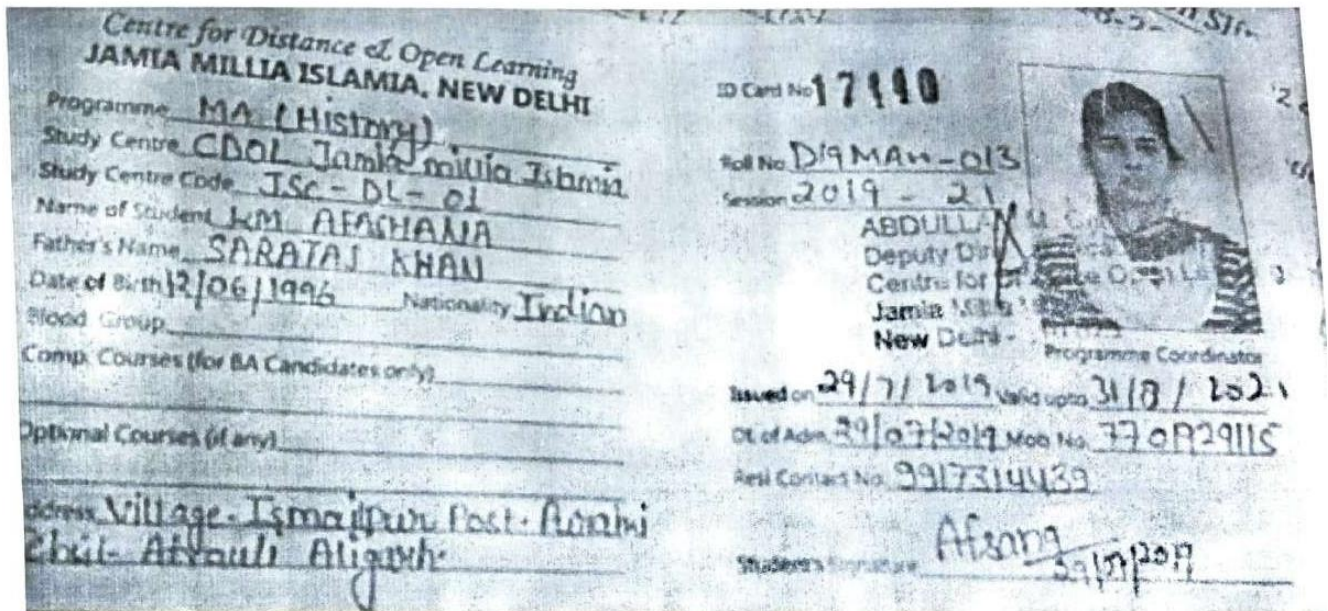 Centre for Distance & Open Learning
JAMIA MILLIA ISLAMIA, NEW DELHI
Programme MA (History)
Study Centre CDOL Jamia millia Islamia
Study Centre Code JSC-DL-01
Name of Student KM AFASHANA
Father's Name SARATAJ KHAN
Date of Birth 12/06/1996 Nationality Indian
Blood Group
Comp. Courses (for BA Candidates only)
Optional Courses (if any)
Address Village-Ismailpur Post-
Atrauli Aligarh
ID Card No 17110
Roll No. D19MAH-013
Session 2019 - 21
ABDULLA
Deputy
Centre for
Jamia
New Delhi-
Programme Coordinator
Issued on 29/7/2019 Valid upto 31/8/2021
Dt. of Adm. 29/07/2019 Mob No.
Resi Contact No. 9917314439
Student's Signature Afsana